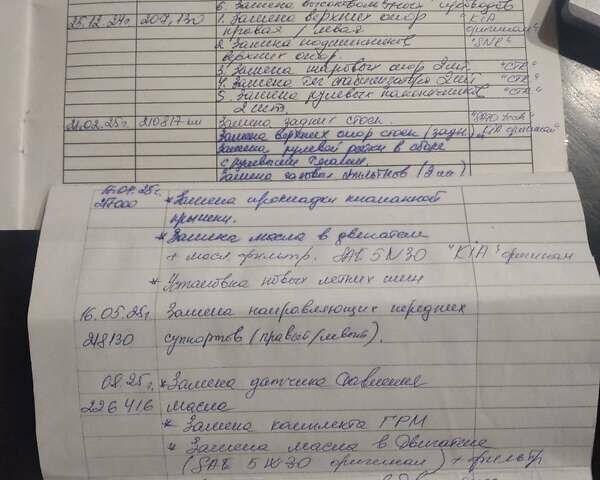 6. Замена высоковольтных проводов
25.12.24г 209,130 1. Замена верхних опор "KIA
правая / левая оригинал"
2. Замена подшипников "SNR"
верхних опор.
3. Замена шаровых опор 2шт "CTR"
4. Замена стабилизатора 2шт "CTR"
5. Замена рулевых наконечников "CTR"
2 шт
21.02.25г. 210817 км Замена задних стоек.
Замена верхних опор стоек (задн.) "KIA оригинал"
Замена рулевой рейки в сборе
с рулевыми тягами.
Замена газовых фильтров (2шт)
* Замена прокладки клапанной
217000 крышки.
* Замена масла в двигателе
+ масл. фильтр. SAE 5W30 "KIA" оригинал
* Установка новых летних шин
16.05.25г. Замена направляющих передних
218130 суппортов (правый/левый).
08.25г. * Замена датчика давления
226416 масла
* Замена комплекта ГРМ
* Замена масла в двигателе
(SAE 5W30 оригинал) + фильтр